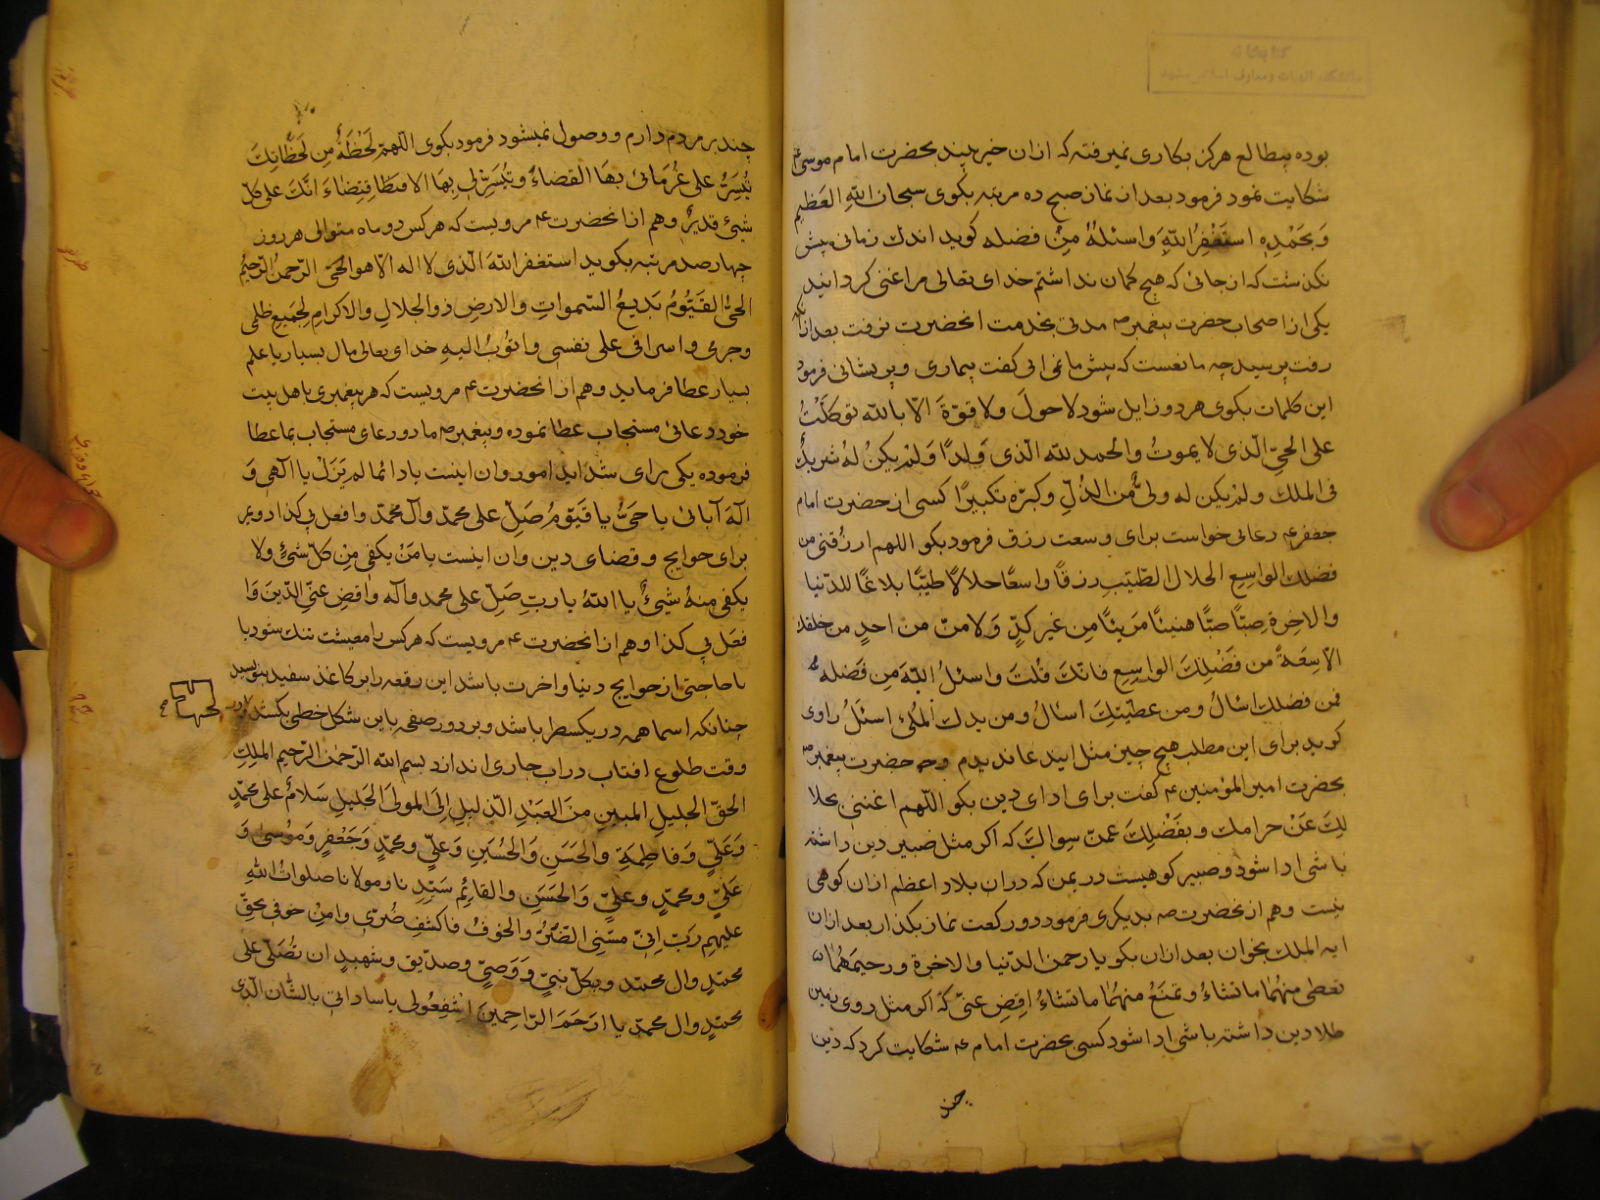 کتابخانه
دانشکده الهیات و معارف اسلامی مشهد
بوده بمطالع هرکز بکاری نمیرفته که ازان خیر بیند بحضرت امام موسی ع
شکایت نمود فرمود بعد از نماز صبح ده مرتبه بکوی سبحان الله العَظیمِ
وَبِحَمْدِهِ استَغْفِرُ اللهَ وَاسئلهُ مِنْ فضله کوید اندك زمانی پیش
نکذشت که از جائی که هیچ کمان نداشتم خدای تعالی مرا غنی کردانید
یکی از اصحاب حضرت پیغمبر ص مدتی بخدمت انحضرت نرفت بعد ازانکه
رفت پرسید چه مانعست که پیش ما نمی ائی کفت بیماری و پریشانی فرمود
این کلمات بکوی هر دو زایل شود لا حولَ ولا قوّةَ الّا بالله توکلتُ
علی الحیِّ الّذی لا یموتُ والحمد لله الّذی وَلدًا وَلم یکنْ لهُ شریكٌ
فی الملك ولم یکن له ولیٌّ من الذُّلِّ وکبّره تکبیرًا کسی از حضرت امام
جعفر ع دعائی خواست برای وسعت رزق فرمود بکو اللهم ارزُقنی من
فضلك الواسِعِ الحلال الطّیّبِ رزقاً واسعًا حلالًا طیّبًا بلاغًا للدّنیا
والاخِرة صبًّا صبًّا هنیئًا مَریئًا مِن غیر کدٍّ وَلا منّ من احدٍ من خلقك
الّا سِعةً من فَضْلِكَ الواسِعِ فانّكَ قُلتَ واسئلُ اللّهَ مِن فَضله
فمن فضلك اسألُ ومن عطیّتِكَ اسألُ ومن یدك المُلئ اسئلُ راوی
کوید برای این مطلب هیچ چیز مثل ایند عا ندیدم وحـ حضرت پیغمبر ص
بحضرت امیر المؤمنین ع کفت برای ادای دین بکو اللّهم اغننی بحلا
لِكَ عَنْ حرامك وبفَضْلِكَ عمّن سِواكَ که اکر مثل ضبیر دین داشته
باشی ادا شود و صبیر کوهیست در یمن که دران بلاد اعظم ازان کوهی
نیست وهم از نحضرت ص بدیکری فرمود دو رکعت نماز بکذار بعد ازان
ایه الملك بخوان بعد ازان بکو یا رحمن الدّنیا والاخرة ورحیمَهُمٰا
تعطی منهُما ما تشاءُ وتمنَعُ منهُمٰا ما تشاءُ اِقضِ عنّی که اکر مثل روی زمین
طلا دین داشته باشی ادا شود کسی بحضرت امام ع شکایت کرد که دین
چند
چند بر مردم دارم ووصول نمیشود فرمود بکوی اللّهمّ لَحْظَةً مِن لَحَظاتِكَ
تُیَسِّرُ علی غُرَمائی بهَا القضاءَ وتُیَسِّرُ لی بِهَا الاقتضاءَ انَّكَ علی کل
شیئٍ قدیرٌ وهم ازانحضرت ع مرویست که هر کس دو ماه متوالی هر روز
چهار صد مرتبه بکوید استغفر اللهَ الّذی لا اله الّا هو الحَیّ الرّحمنُ الرّحیمُ
الحیُّ القَیّومُ بَدیعُ السّمواتِ والارضِ ذو الجلالِ والاکرامِ لِجَمیعِ ظلمی
وجرمی واسرافی علی نفسی واتُوبُ الیهِ خدای تعالی مال بسیار یا علم
بسیار عطا فرماید وهم ازانحضرت ع مرویست که هر پیغمبری باهل بیت
خود دعائی مستجاب عطا نموده وپیغمبر ص ما دو دعای مستجاب بما عطا
فرموده یکی برای شداید امور وان اینست یا دائما لم یَزَلْ یا الٓهی وَ
الٓهَ آبائی یا حَیُّ یا قیّومُ صَلِّ علی محمّد وآل محمّد وافعل بی کذا دویم
برای حوایج وقضای دین وان اینست یا مَنْ یکفی مِنْ کلّ شیئٍ ولا
یکفی مِنهُ شیئٌ یا اللهُ یا ربِ صَلِّ علی محمد وآله واقضِ عنّی الدّینَ وَا
فعَل بی کذا وهم ازانحضرت ع مرویست که هر کس را معیشت تنك شود یا
یا حاجتی از حوایج دنیا واخرت باشد این رقعه را بر کاغذ سفید بنویسد
چنانکه اسما همه در یکسطر باشد وبر دور صفحه باین شکل خطی بکشد
وقت طلوع افتاب دراب جاری اندازد بسم الله الرّحمن الرّحیم الملِكِ
الحقّ الجلیلِ المبینِ مِنَ العَبْدِ الذّلیلِ اِلَی المولَی الجَلیلِ سَلامٌ علی محمّدٍ
وَعَلیٍّ وَفاطِمَةِ والحَسَنِ والحُسَینِ وَعَلیٍّ ومحمّدٍ وَجَعْفَرٍ وَمُوسیٰ وَ
عَلیٍّ ومحمّدٍ وعلیٍّ وَالحَسَنِ والقائِم سَیّدِنا ومولانا صلواتُ اللهِ
علیهِم رَبّ اِنّی مسّنی الضُّرُّ والخوفُ فاکشِف ضُرّی وامِنْ خوفی بحقِّ
محمّدٍ وال محمّد وبکلّ نبیٍّ وَوَصیٍّ وصدّیقٍ وشهیدٍ ان تُصَلّی علی
محمّدٍ وال محمّد یا ارحَمَ الرّاحِمینَ اِشفِعُوا لی یا ساداتی بالشّان الّذی